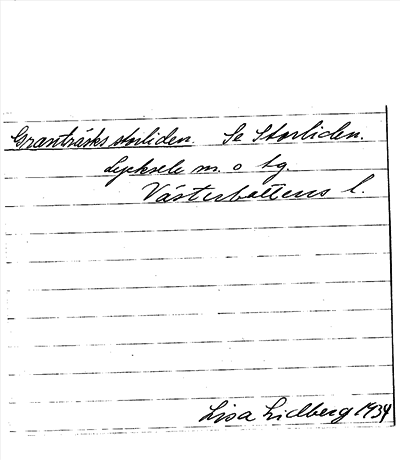 Granträsks storliden. Se Storliden.
Lycksele m. o tg
Västerbottens l.
Lisa Lidberg 1934